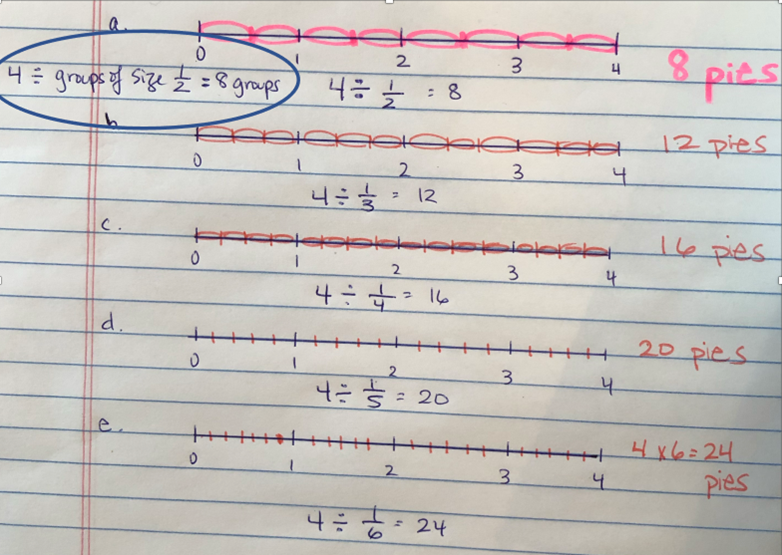 a.
0 1 2 3 4
8 pies
4 ÷ groups of size 1/2 = 8 groups
4 ÷ 1/2 = 8
b.
0 1 2 3 4
12 pies
4 ÷ 1/3 = 12
c.
0 1 2 3 4
16 pies
4 ÷ 1/4 = 16
d.
0 1 2 3 4
20 pies
4 ÷ 1/5 = 20
e.
0 1 2 3 4
4 x 6 = 24
pies
4 ÷ 1/6 = 24